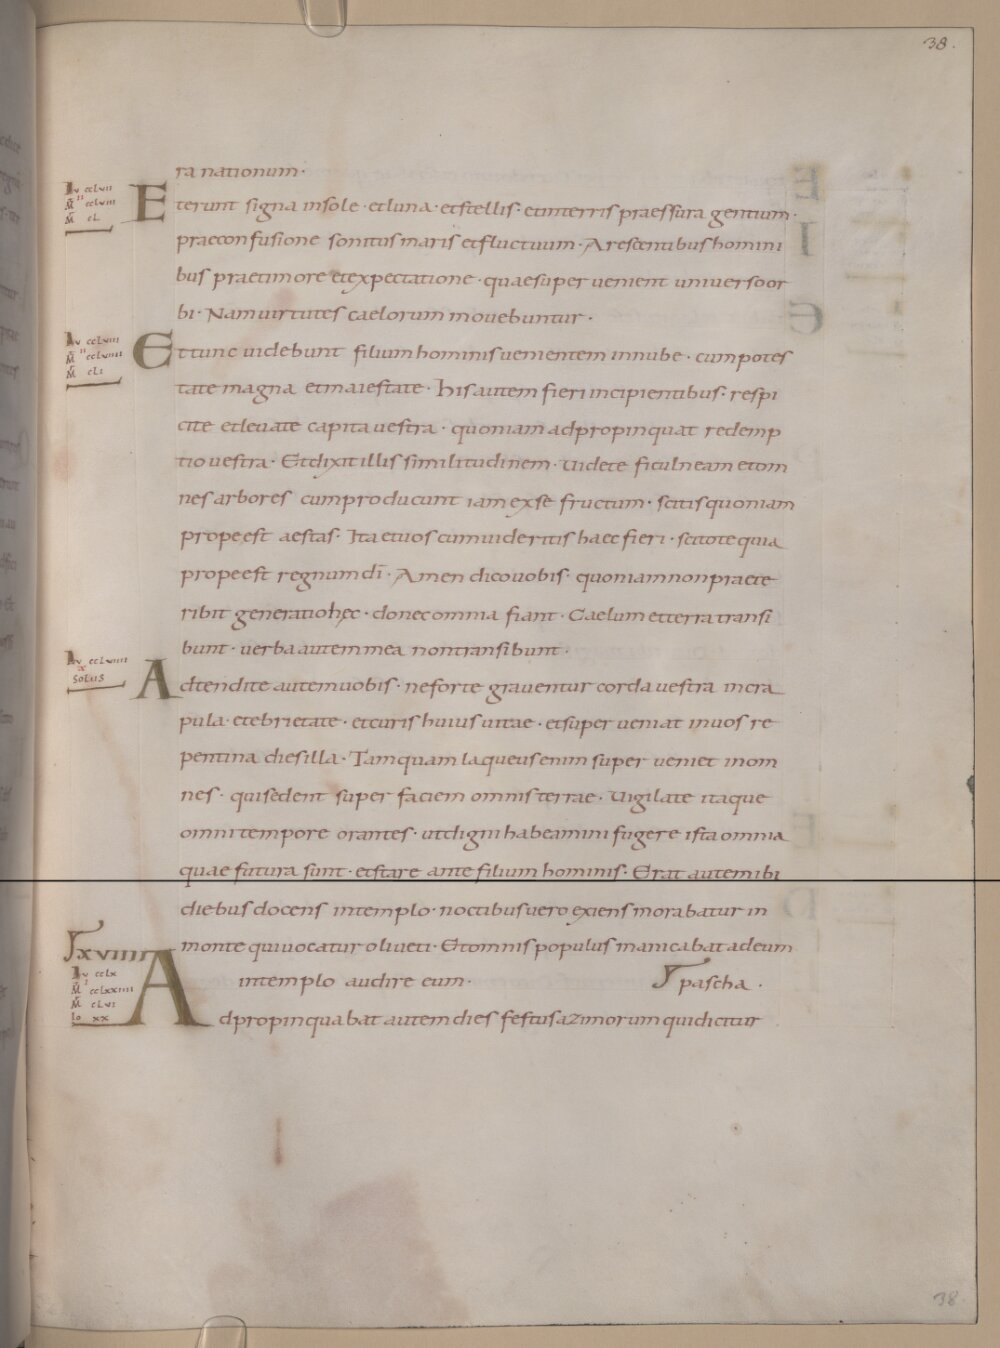 38.
ra nationum·
Lu cclvii
Mt cclviii
Mr cl
Eterunt signa insole· etluna· etstellis· etinterris praessura gentium·
praeconfusione sonitus maris etfluctuum· Arescentibus homini
bus praetimore etexpectatione· quaesuper uenient uniuersoor
bi· Nam uirtutes caelorum mouebuntur·
Lu cclviii
Mt cclviiii
Mr cli
Ettunc uidebunt filium hominis uenientem innube· cum potes
tate magna etmaiestate· his autem fieri incipientibus· respi
cite etleuate capita uestra· quoniam adpropinquat redemp
tio uestra· Etdixit illis similitudinem· Uidete ficulneam etom
nes arbores cum producunt iam exse fructum· scitis quoniam
prope est aestas· Ita etuos cum uideritis haec fieri· scitote quia
prope est regnum dī· Amen dico uobis· quoniam non praete
ribit generatio hec· donec omnia fiant· Caelum etterra transi
bunt· uerba autem mea non transibunt·
Lu cclviiii
x
solus
Adtendite autem uobis· neforte grauentur corda uestra incra
pula· etebrietate· etcuris huius uitae· etsuper ueniat inuos re
pentina dies illa· Tamquam laqueus enim super ueniet inom
nes· qui sedent super faciem omnis terrae· Uigilate itaque
omni tempore orantes· ut digni habeamini fugere ista omnia
quae futura sunt· etstare ante filium hominis· Erat autem ibi
diebus docens intemplo· noctibus uero exiens morabatur in
monte qui uocatur oliueti· Etomnis populus manicabat adeum
xviiii
intemplo audire eum· pascha·
Lu cclx
Mt cclxxiiii
Mr clvi
Io xx
Adpropinquabat autem dies festus azimorum qui dicitur
38